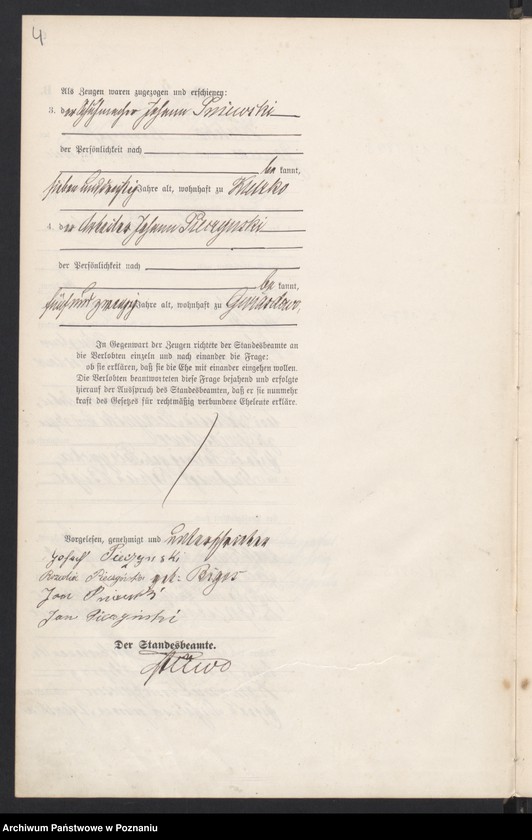 4
Als Zeugen waren zugezogen und erschienen:
3. der Schuhmacher Johann Pniewski
der Persönlichkeit nach
be kannt,
sieben und dreißig Jahre alt, wohnhaft zu Kletzko
4. der Arbeiter Johann Pieczynski
der Persönlichkeit nach
be kannt,
fünf und zwanzig Jahre alt, wohnhaft zu
In Gegenwart der Zeugen richtete der Standesbeamte an
die Verlobten einzeln und nach einander die Frage:
ob sie erklären, daß sie die Ehe mit einander eingehen wollen.
Die Verlobten beantworteten diese Frage bejahend und erfolgte
hierauf der Ausspruch des Standesbeamten, daß er sie nunmehr
kraft des Gesetzes für rechtmäßig verbundene Eheleute erkläre.
Vorgelesen, genehmigt und unterschrieben
Josef Pieczynski
Rozalia Pieczyńska geb.
Jan Pniewski
Jan Pieczyński
Der Standesbeamte.
Archiwum Państwowe w Poznaniu